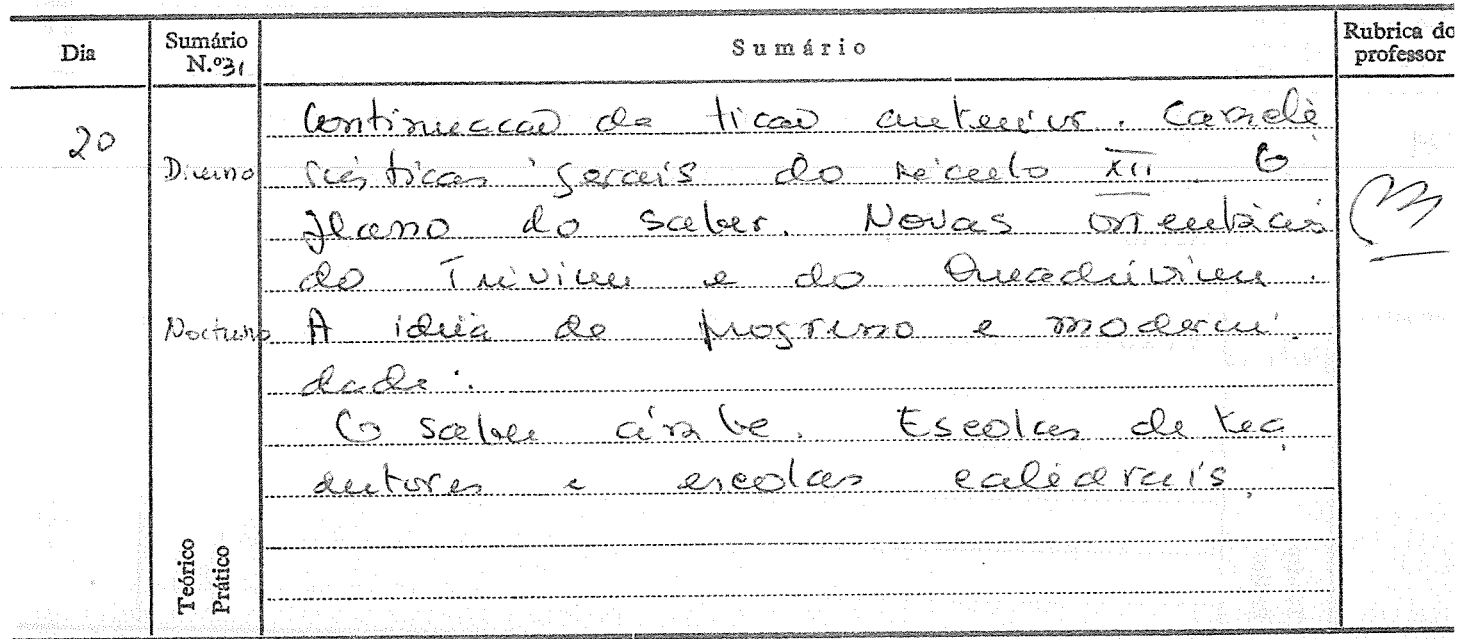 Dia
Sumário N.º 31
Sumário
Rubrica do professor
20
Diurno
Nocturno
Teórico
Prático
Continuação da lição anterior. Caracte
rísticas gerais do século XII. O
plano do saber. Novas orientações
do Trivium e do Quadrivium.
A ideia de progresso e moderni
dade.
O saber árabe. Escolas de tra
dutores e escolas catedrais.